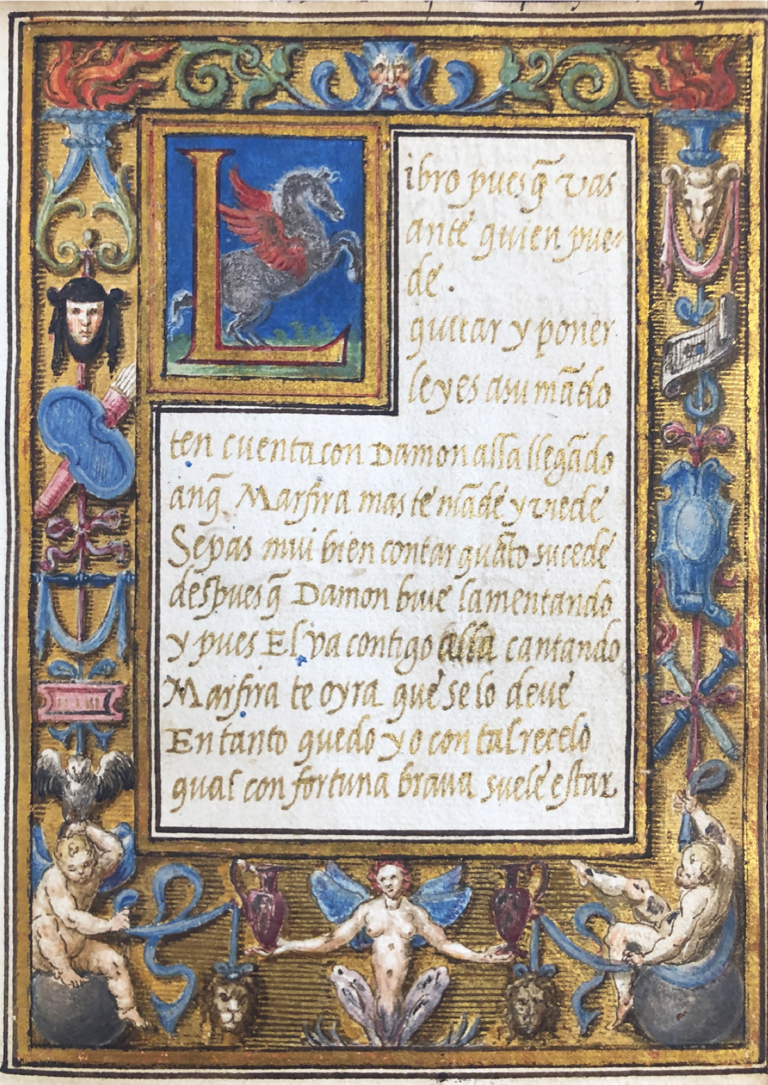 Libro pues q̃ vas
ante quien pue-
de.
quitar y poner
leyes a su mãdo
ten cuenta con Damon alla llegãdo
anq̃ Marfira mas te mãde y viede
Sepas mui bien contar quãto sucede
despues q̃ Damon biue lamentando
y pues El va contigo alla cantando
Marfira te oyra que se lo deue
En tanto quedo yo con tal recelo
qual con fortuna braua suele estar